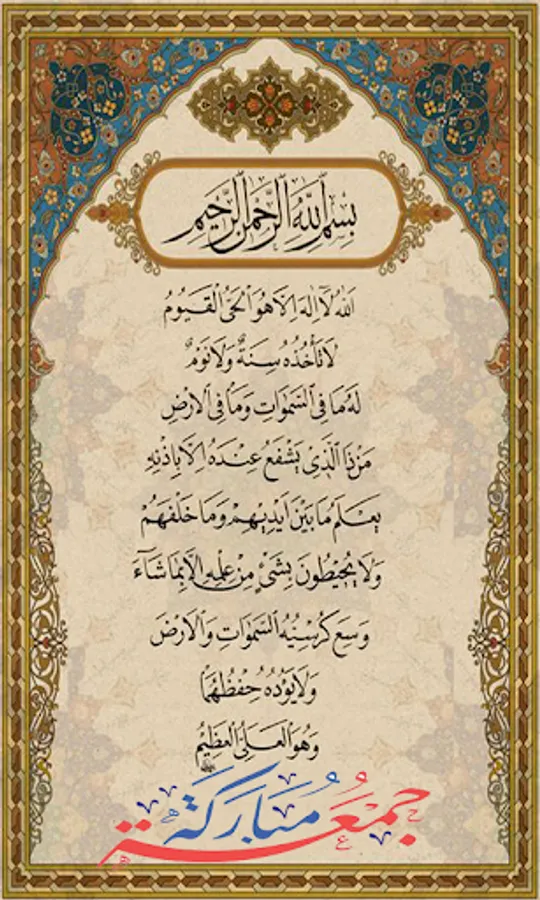 بِسْمِ اللهِ الرَّحْمٰنِ الرَّحِيمِ
اَللهُ لَٓا اِلٰهَ اِلَّا هُوَ اَلْحَىُّ الْقَيُّومُ
لَا تَأْخُذُهُ سِنَةٌ وَلَا نَوْمٌ
لَهُ مَا فِى السَّمٰوَاتِ وَمَا فِى الْاَرْضِ
مَنْ ذَا الَّذِى يَشْفَعُ عِنْدَهُ اِلَّا بِاِذْنِهِ
يَعْلَمُ مَا بَيْنَ اَيْدِيهِمْ وَمَا خَلْفَهُمْ
وَلَا يُحِيطُونَ بِشَىْءٍ مِنْ عِلْمِهِ اِلَّا بِمَا شَٓاءَ
وَسِعَ كُرْسِيُّهُ السَّمٰوَاتِ وَالْاَرْضَ
وَلَا يَؤُدُهُ حِفْظُهُمَا
وَهُوَ الْعَلِىُّ الْعَظِيمُ
جُمُعَة مُبَارَكَة